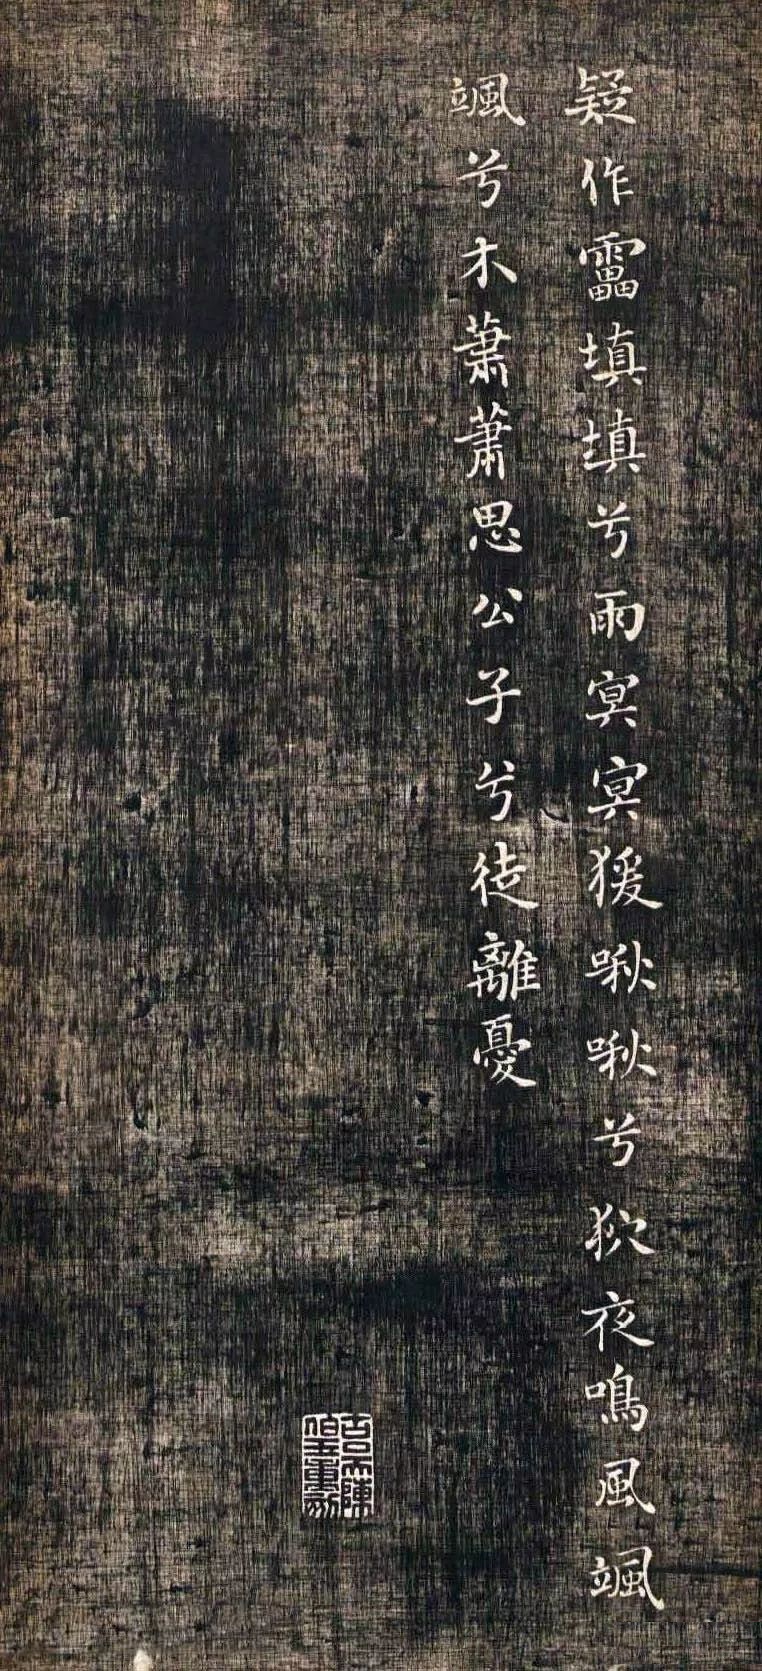 疑作靁填填兮雨冥冥猨啾啾兮狖夜鳴風颯
颯兮木蕭蕭思公子兮徒離憂